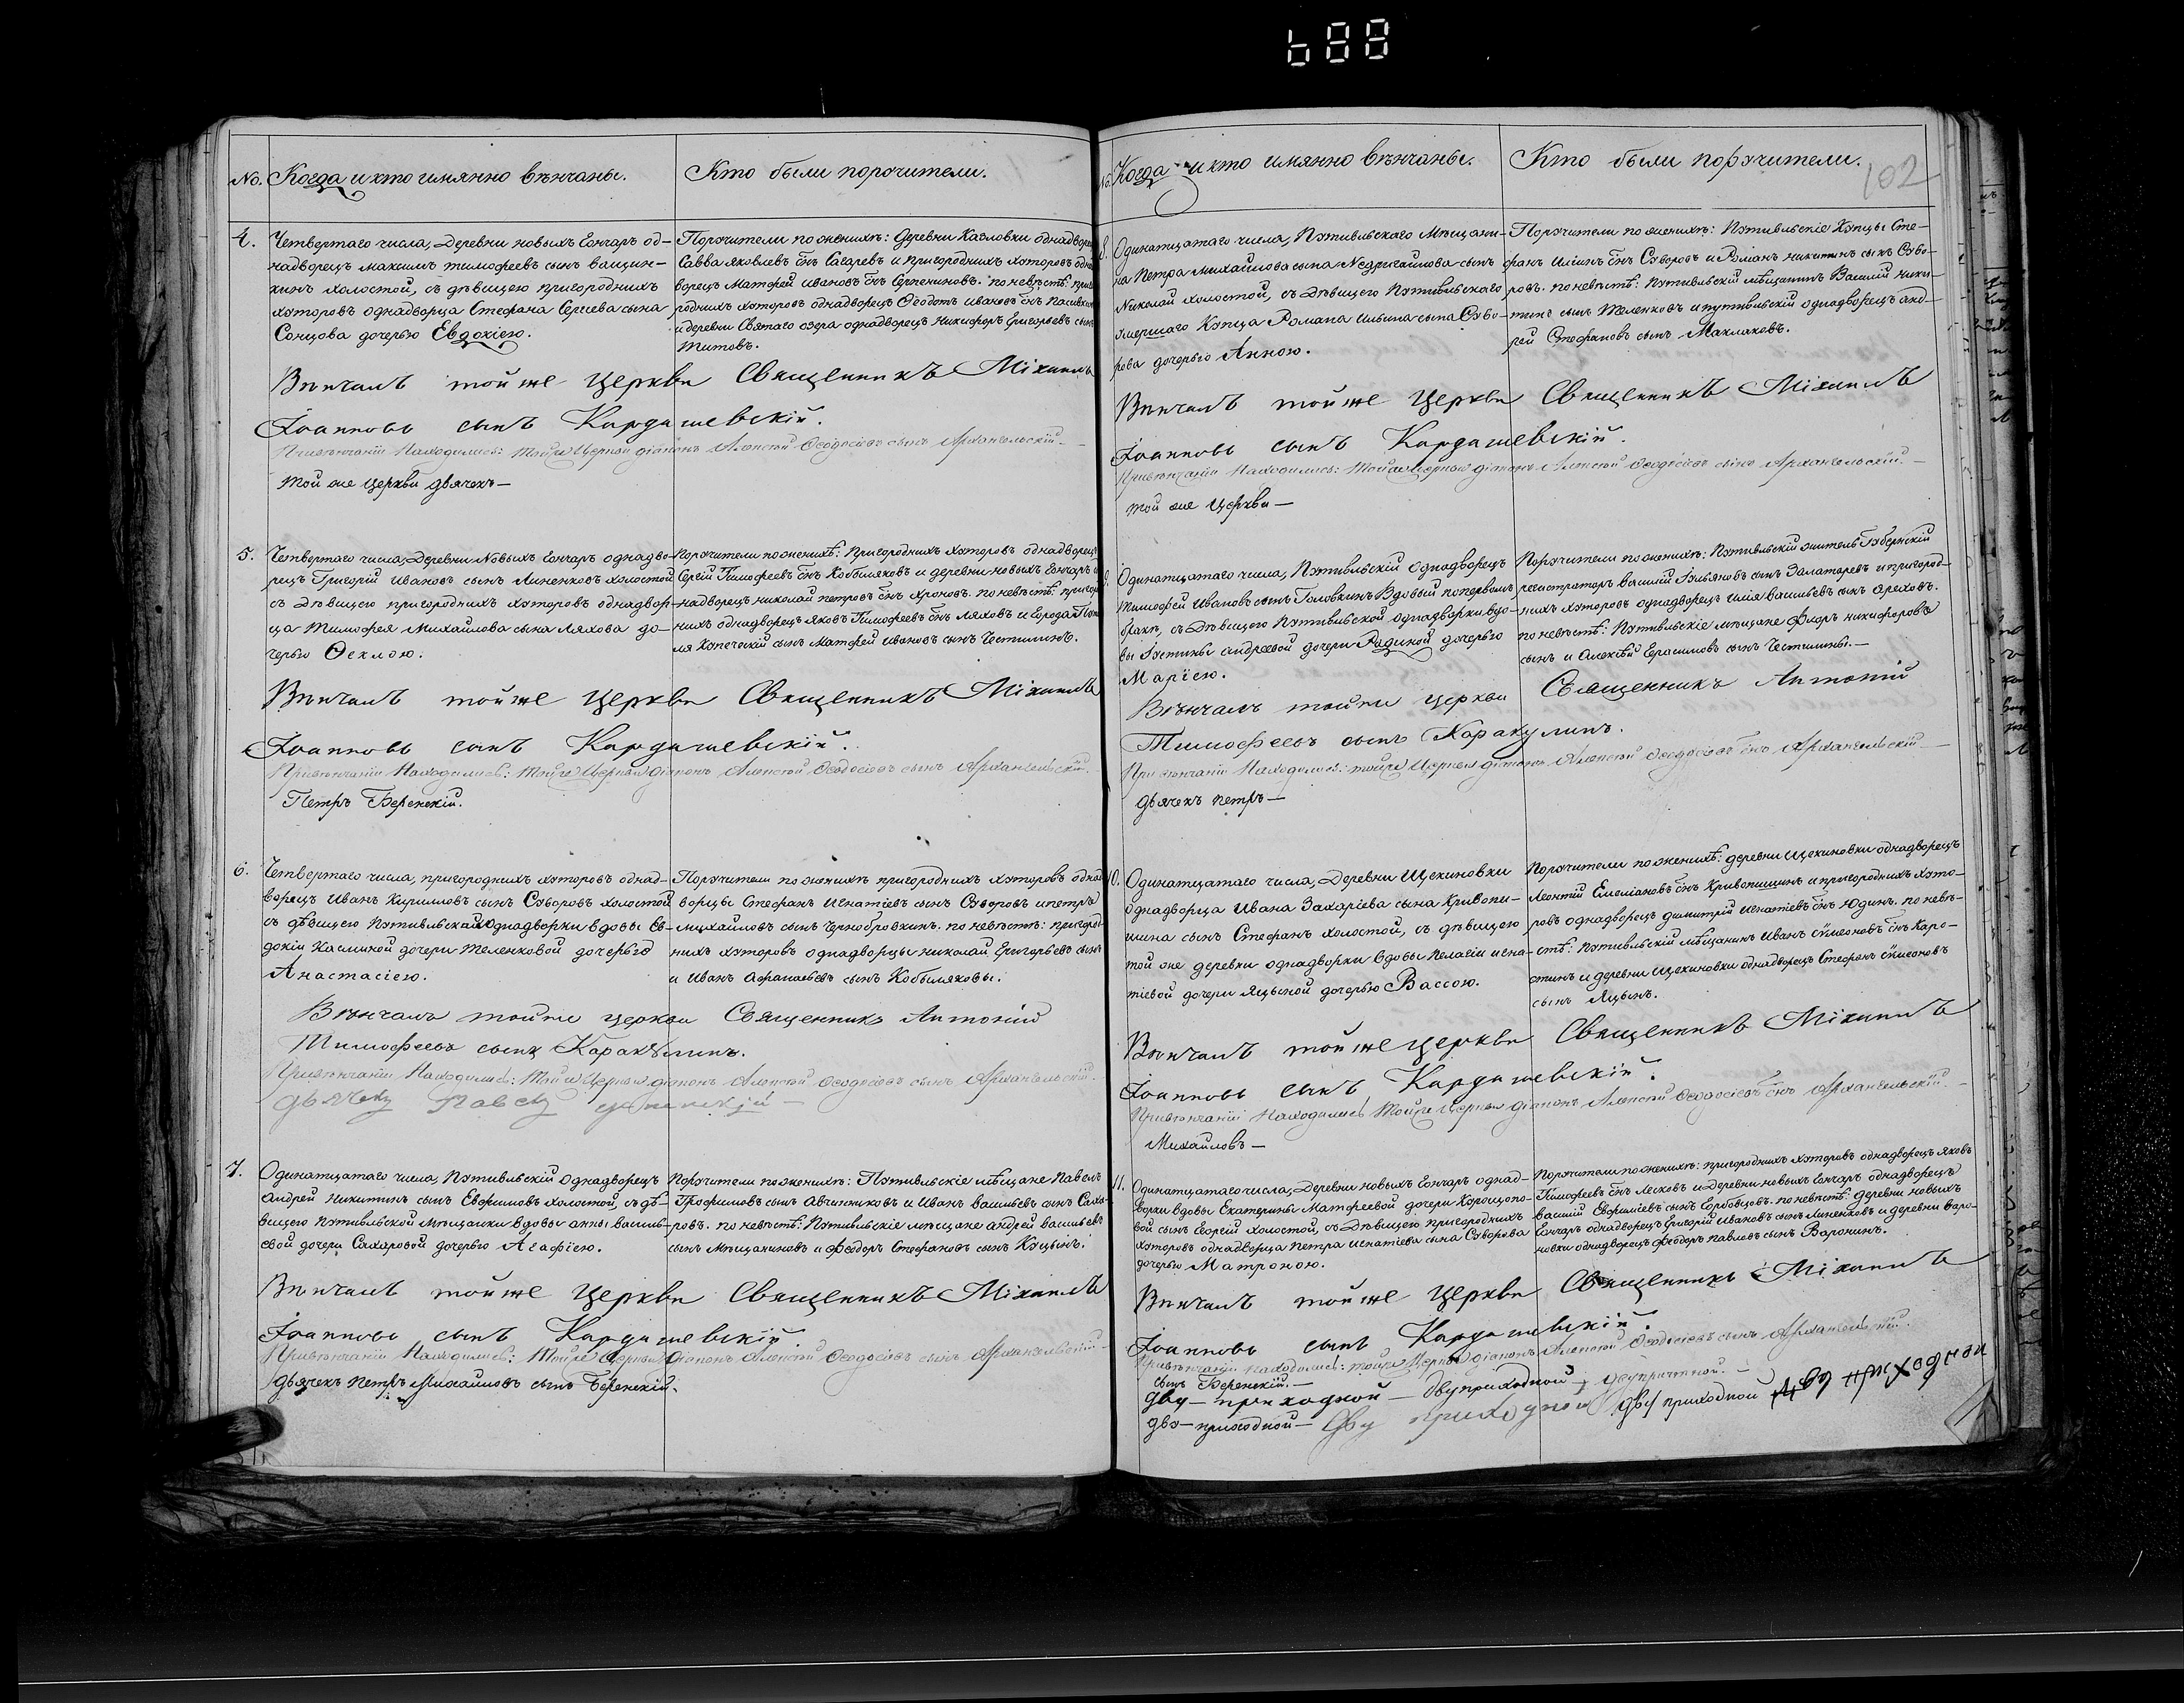 No. Когда и кто имянно вѣнчаны.
Кто были порȣчители.
4.
Четвертаго числа, Деревни новыхъ Гончаръ од-
надворецъ Максимъ тимофеевъ сынъ
хинъ холостой, съ дѣвицею пригородныхъ
хȣторовъ однадворца Стефана Сергеева сына
Сонцова дочерью Евдокіею.
Порȣчители по женихѣ: деревни Казловки
Савва яковлевъ сн҃ъ Сагаревъ и пригородныхъ хȣторовъ
ворецъ Матфей ивановъ сн҃ъ
родныхъ хȣторовъ однадворецъ Ѳеодотъ ивановъ сн҃ъ
и деревни Святаго озера однадворецъ Никифоръ Григорьевъ сынъ
Титовъ.
Вѣнчалъ той же Церкви Священникъ Міхаилъ
Іоанновъ сынъ Кардашевскій.
При вѣнчаніи Находились: Тойже Церкви діаконъ Алексѣй Ѳеодосіевъ сынъ Архангельскій.
той же церкви дьячекъ—
5.
Четвертаго числа, Деревни Новыхъ Гончаръ однадво-
рецъ Григорій Ивановъ сынъ Линенковъ холостой
съ Дѣвицею пригородныхъ хȣторовъ однадвор-
ца Тимофея Михайлова сына Ляхова до-
черью Ѳеклою.
Порȣчители по женихѣ: Пригородныхъ хȣторовъ однадворецъ
Сергій Тимофеевъ сн҃ъ Кобыляковъ и деревни новыхъ Гончаръ
надворецъ николай петровъ сн҃ъ Хроновъ. по невѣстѣ:
нихъ однадворецъ Яковъ Тимофеевъ сн҃ъ Ляховъ и города
ля Кȣпеческій сынъ Матфей ивановъ сынъ Чеетилинъ.
Вѣнчалъ той же Церкви Священникъ Міхаилъ
Іоанновъ сынъ Кардашевскій.
При вѣнчаніи Находились: Тойже Церкви діаконъ Алексѣй Ѳеодосіевъ сынъ Архангельскій.
Петръ Беренскій.
6.
Четвертаго числа, пригородныхъ хȣторовъ однад-
ворецъ Иванъ Кирилловъ сынъ Сȣворовъ холостой
съ дѣвицею Пȣтивльской Однадворки вдовы Ев-
докіи Касминой дочери Теленковой дочерью
Анастасіею.
Порȣчители по женихѣ пригородныхъ хȣторовъ
ворцы Стефанъ Игнатіевъ сынъ Сȣворовъ и петръ
михайловъ сынъ Чернобровкинъ. по невѣстѣ:
нихъ хȣторовъ однадворцы николай Григорьевъ сынъ
и Иванъ Афанасьевъ сынъ Кобыляковы.
Вѣнчалъ тойже церкви Священникъ Антоній
Тимофеевъ сынъ Каракȣлинъ.
При вѣнчаніи Находились: Тойже Церкви діаконъ Алексѣй Ѳеодосіевъ сынъ Архангельскій.
дьячекъ Павелъ
7.
Одинатцатаго числа, Пȣтивльскій Однадворецъ
Андрей Никитинъ сынъ Евфимовъ холостой, съ дѣ-
вицею Пȣтивльской Мѣщанки вдовы анны василь-
евой дочери Сахаровой дочерью Агафіею.
Порȣчители по женихѣ: Пȣтивльскіе мѣщане Павелъ
Трофимовъ сынъ Авчинниковъ и Иванъ васильевъ сынъ Саха-
ровъ. по невѣстѣ: Пȣтивльскіе мѣщане андрей васильевъ
сынъ Мѣщаниновъ и Феодоръ Стефановъ сынъ Кȣцынъ.
Вѣнчалъ той же Церкви Священникъ Міхаилъ
Іоанновъ сынъ Кардашевскій.
При вѣнчаніи Находились: Тойже Церкви діаконъ Алексѣй Ѳеодосіевъ сынъ Архангельскій
дьячекъ петръ Михаиловъ сынъ Беренскій.
Когда и кто имянно вѣнчаны.
Кто были порȣчители.
102
8.
Одинатцатаго числа, Пȣтивльскаго Мѣщани-
на Петра Михайлова сына Недригайлова сынъ
Николай холостой, съ Дѣвицею Пȣтивльскаго
ȣмершаго Кȣпца Романа Ильина сына Сȣво-
рова дочерью Анною.
Порȣчители по женихѣ: Пȣтивльскіе Кȣпцы Сте-
фанъ Ильинъ сн҃ъ Сȣворовъ и Романъ никитинъ сынъ Сȣво-
ровъ. по невѣстѣ: Пȣтивльскій мѣщанинъ Василій Ники-
тинъ сынъ Теленковъ и путивльскій однадворецъ анд-
рей Стефановъ сынъ Маклаковъ.
Вѣнчалъ той же Церкви Священникъ Міхаилъ
Іоанновъ сынъ Кардашевскій.
При вѣнчаніи Находились: Тойже Церкви діаконъ Алексѣй Ѳеодосіевъ сынъ Архангельскій.—
той же Церкви—
9.
Одинатцатаго числа, Пȣтивльскій Однадворецъ
Тимофей Ивановъ сынъ Головкинъ Вдовый по первомъ
бракѣ, съ Дѣвицею Пȣтивльской однадворки вдо-
вы Іȣстины андреевой дочери Рѣдиной дочерью
Маріею.
Порȣчители по женихѣ: Пȣтивльскій житель Гȣбернскій
регистраторъ василій Гȣльяновъ сынъ Залатаревъ и пригород-
ныхъ хȣторовъ однадворецъ Илія васильевъ сынъ Ореховъ.
по невѣстѣ: Пȣтивльскіе мѣщане Флоръ никифоровъ
сынъ и Алексѣй Герасимовъ сынъ Чеетилины.—
Вѣнчалъ тойже церкви Священникъ Антоній
Тимофеевъ сынъ Каракулинъ.
При вѣнчаніи Находились: тойже Церкви діаконъ Алексѣй Ѳеодосіевъ сн҃ъ Архангельскій
дьячекъ петръ—
10.
Одинатцатаго числа, Деревни Щекиновки
однадворца Ивана Захаріева сына Кривопи-
шина сынъ Стефанъ холостой, съ дѣвицею
той же деревни однадворки вдовы Пелагіи игна-
тіевой дочери Яцыной дочерью Вассою.
Порȣчители по женихѣ: деревни Щекиновки однадворецъ
Леонтій Емеліановъ сн҃ъ Кривопишинъ и пригородныхъ хȣто-
ровъ однадворецъ димитрій Игнатіевъ сн҃ъ Юдинъ. по невѣ-
стѣ: Пȣтивльскій мѣщанинъ Иванъ сѵмеоновъ сн҃ъ Каро-
стинъ и деревни Щекиновки однадворецъ Стефанъ сѵмеоновъ
сынъ Яцынъ.
Вѣнчалъ той же церкви Священникъ Міхаилъ
Іоанновъ сынъ Кардашевскій.
При вѣнчаніи Находились Тойже Церкви діаконъ Алексѣй Ѳеодосіевъ сн҃ъ Архангельскій.—
Михайловъ—
11.
Одинатцатаго числа, Деревни новыхъ Гончаръ однад-
ворки вдовы Екатерины Матфеевой дочери Карощопо-
вой сынъ Георгій холостой, съ Дѣвицею пригородныхъ
хȣторовъ однадворца Петра Игнатіева сына Сȣворова
дочерью Матроною.
Порȣчители по женихѣ: пригородныхъ хȣторовъ однадворецъ яковъ
Тимофеевъ сн҃ъ Ляховъ и Деревни новыхъ Гончаръ однадворецъ
василій Евфиміевъ сынъ Горбовцовъ. по невѣстѣ: деревни новыхъ
Гончаръ однадворецъ Григорій Ивановъ сынъ Линенковъ и деревни Варо-
новки однадворецъ Феодоръ павловъ сынъ Воронинъ.
Вѣнчалъ той же Церкви Священникъ Міхаилъ
Іоанновъ сынъ Кардашевскій.
При вѣнчаніи находились: тойже Церкви діаконъ Алексѣй Ѳеодосіевъ сынъ Архангельскій.
сынъ Беренскій.—
дву—приходной— двуприходной, двупричтной.—
двȣ—приходной— Дву приходной двȣ приходной дву приходной